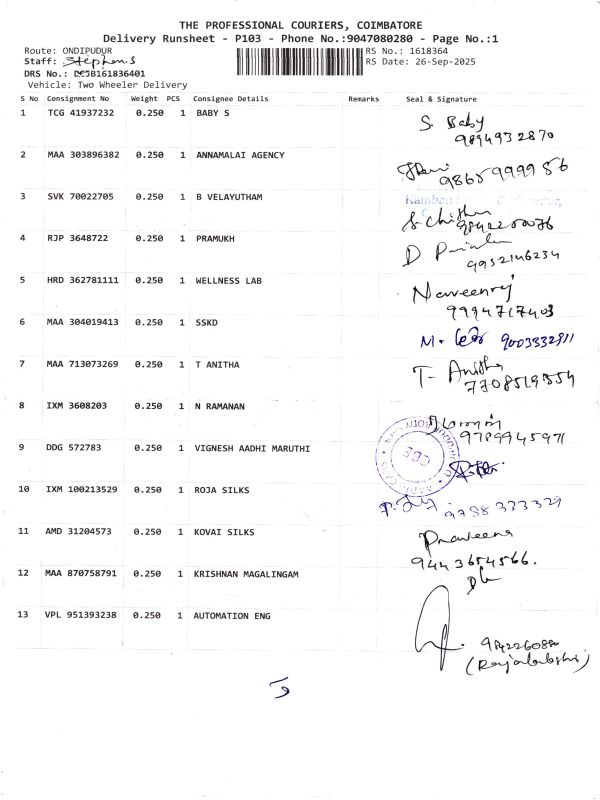 THE PROFESSIONAL COURIERS, COIMBATORE
Delivery Runsheet - P103 - Phone No.:9047080280 - Page No.:1
Route: ONDIPUDUR
RS No.: 1618364
Staff: Stephen S
RS Date: 26-Sep-2025
DRS No.: DCJB161836401
Vehicle: Two Wheeler Delivery
S No Consignment No Weight PCS Consignee Details Remarks Seal & Signature
1 TCG 41937232 0.250 1 BABY S S. Baby
9894932870
2 MAA 303896382 0.250 1 ANNAMALAI AGENCY
9865999986
3 SVK 70022705 0.250 1 B VELAYUTHAM
4 RJP 3648722 0.250 1 PRAMUKH D
9952146234
5 HRD 362781111 0.250 1 WELLNESS LAB Naveenraj
9994717403
6 MAA 304019413 0.250 1 SSKD M.
9003332911
7 MAA 713073269 0.250 1 T ANITHA T- Anitha
7708519354
8 IXM 3608203 0.250 1 N RAMANAN
9789945971
9 DDG 572783 0.250 1 VIGNESH AADHI MARUTHI CBE
10 IXM 100213529 0.250 1 ROJA SILKS
9788333329
11 AMD 31204573 0.250 1 KOVAI SILKS Praveena
9443654566.
12 MAA 870758791 0.250 1 KRISHNAN MAGALINGAM
13 VPL 951393238 0.250 1 AUTOMATION ENG
(Rajalakshmi)